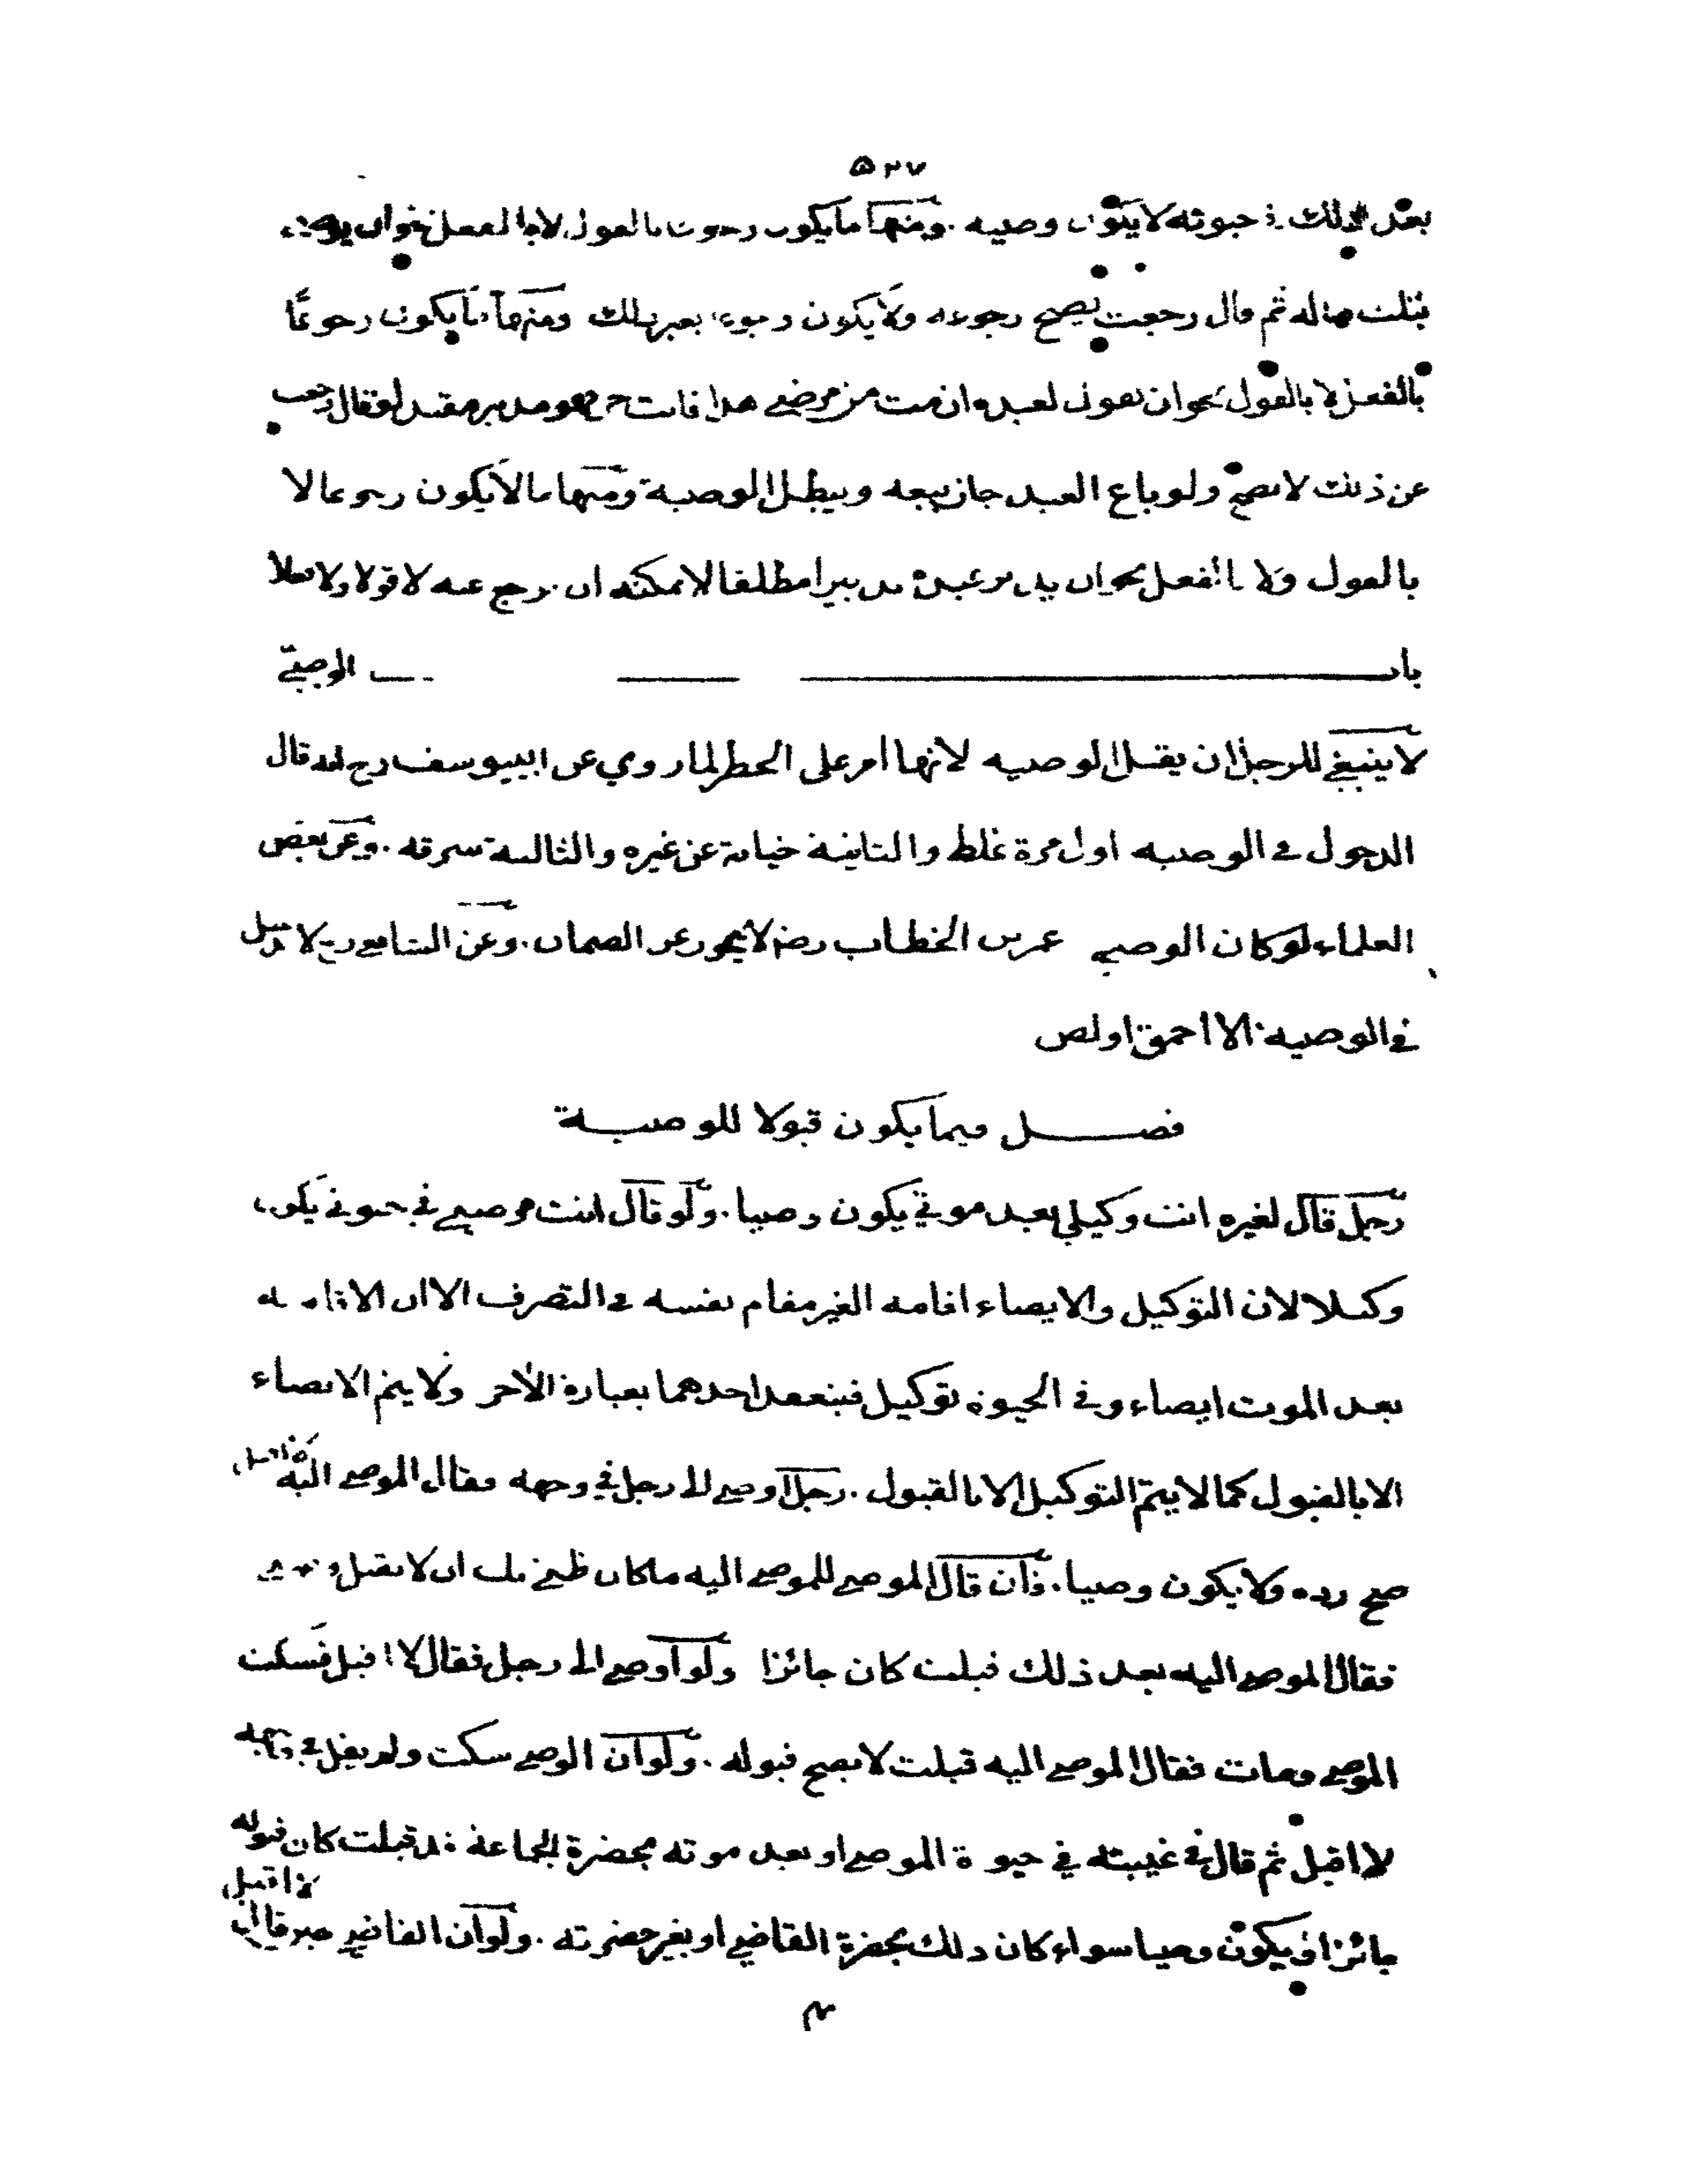 ٥٣٧
بعد ذلك في حيوته لا يكون وصيه . ومنها ما يكون رجوعا بالقول لا بالفعل نحو ان يوصي
بثلث ماله ثم قال رجعت يصح رجوعه ولا يكون رجوعه بغير ذلك ومنها ما يكون رجوعًا
بالفعل لا بالقول نحو ان يقول لعبده ان مت من مرضي هذا فانت حر فهو مدبر مقيد لو قال رجعت
عن ذلك لا يصح ولو باع العبد جاز بيعه ويبطل الوصية ومنها ما لا يكون رجوعا لا
بالقول ولا بالفعل نحو ان يدبر عبده تدبيرا مطلقا لا يمكنه ان يرجع عنه لا قولا ولا فعلا
باب الوصي
لا ينبغي للرجل ان يقبل الوصيه لانها امر على الخطر لما روي عن ابي يوسف رح انه قال
الدخول في الوصيه اول مرة غلط والثانية خيانة عن غيره والثالثة سرقه . وعن بعض
العلماء لو كان الوصي عمر بن الخطاب رضه لا يجوز عن الضمان . وعن الشافعي رح لا يدخل
في الوصيه الا احمق او لص
فصل فيما يكون قبولا للوصية
رجل قال لغيره انت وكيلي بعد موتي يكون وصيا . ولو قال انت وصيي في حيوتي يكون
وكيلا لان التوكيل والايصاء اقامه الغير مقام نفسه في التصرف الا ان الاقامه
بعد الموت ايصاء وفي الحيوة توكيل فينعقد احدهما بعبارة الآخر ولا يتم الايصاء
الا بالقبول كما لا يتم التوكيل الا بالقبول . رجل اوصى الى رجل في وجهه فقال الموصى اليه لا اقبل
صح رده ولا يكون وصيا . فان قال الموصي للموصى اليه ما كان ظني بك ان لا تقبل
فقال الموصى اليه بعد ذلك قبلت كان جائزا ولو اوصى الى رجل فقال لا اقبل فسكت
الموصي ومات فقال الموصى اليه قبلت لا يصح قبوله . ولو ان الوصي سكت ولم يقل في وجهه
لا اقبل ثم قال في غيبته في حيوة الموصي او بعد موته بحضرة الجماعة قد قبلت كان قبوله
جائزا ويكون وصيا سواء كان ذلك بحضرة القاضي او بغير حضرته . ولو ان القاضي حين قال لا اقبل